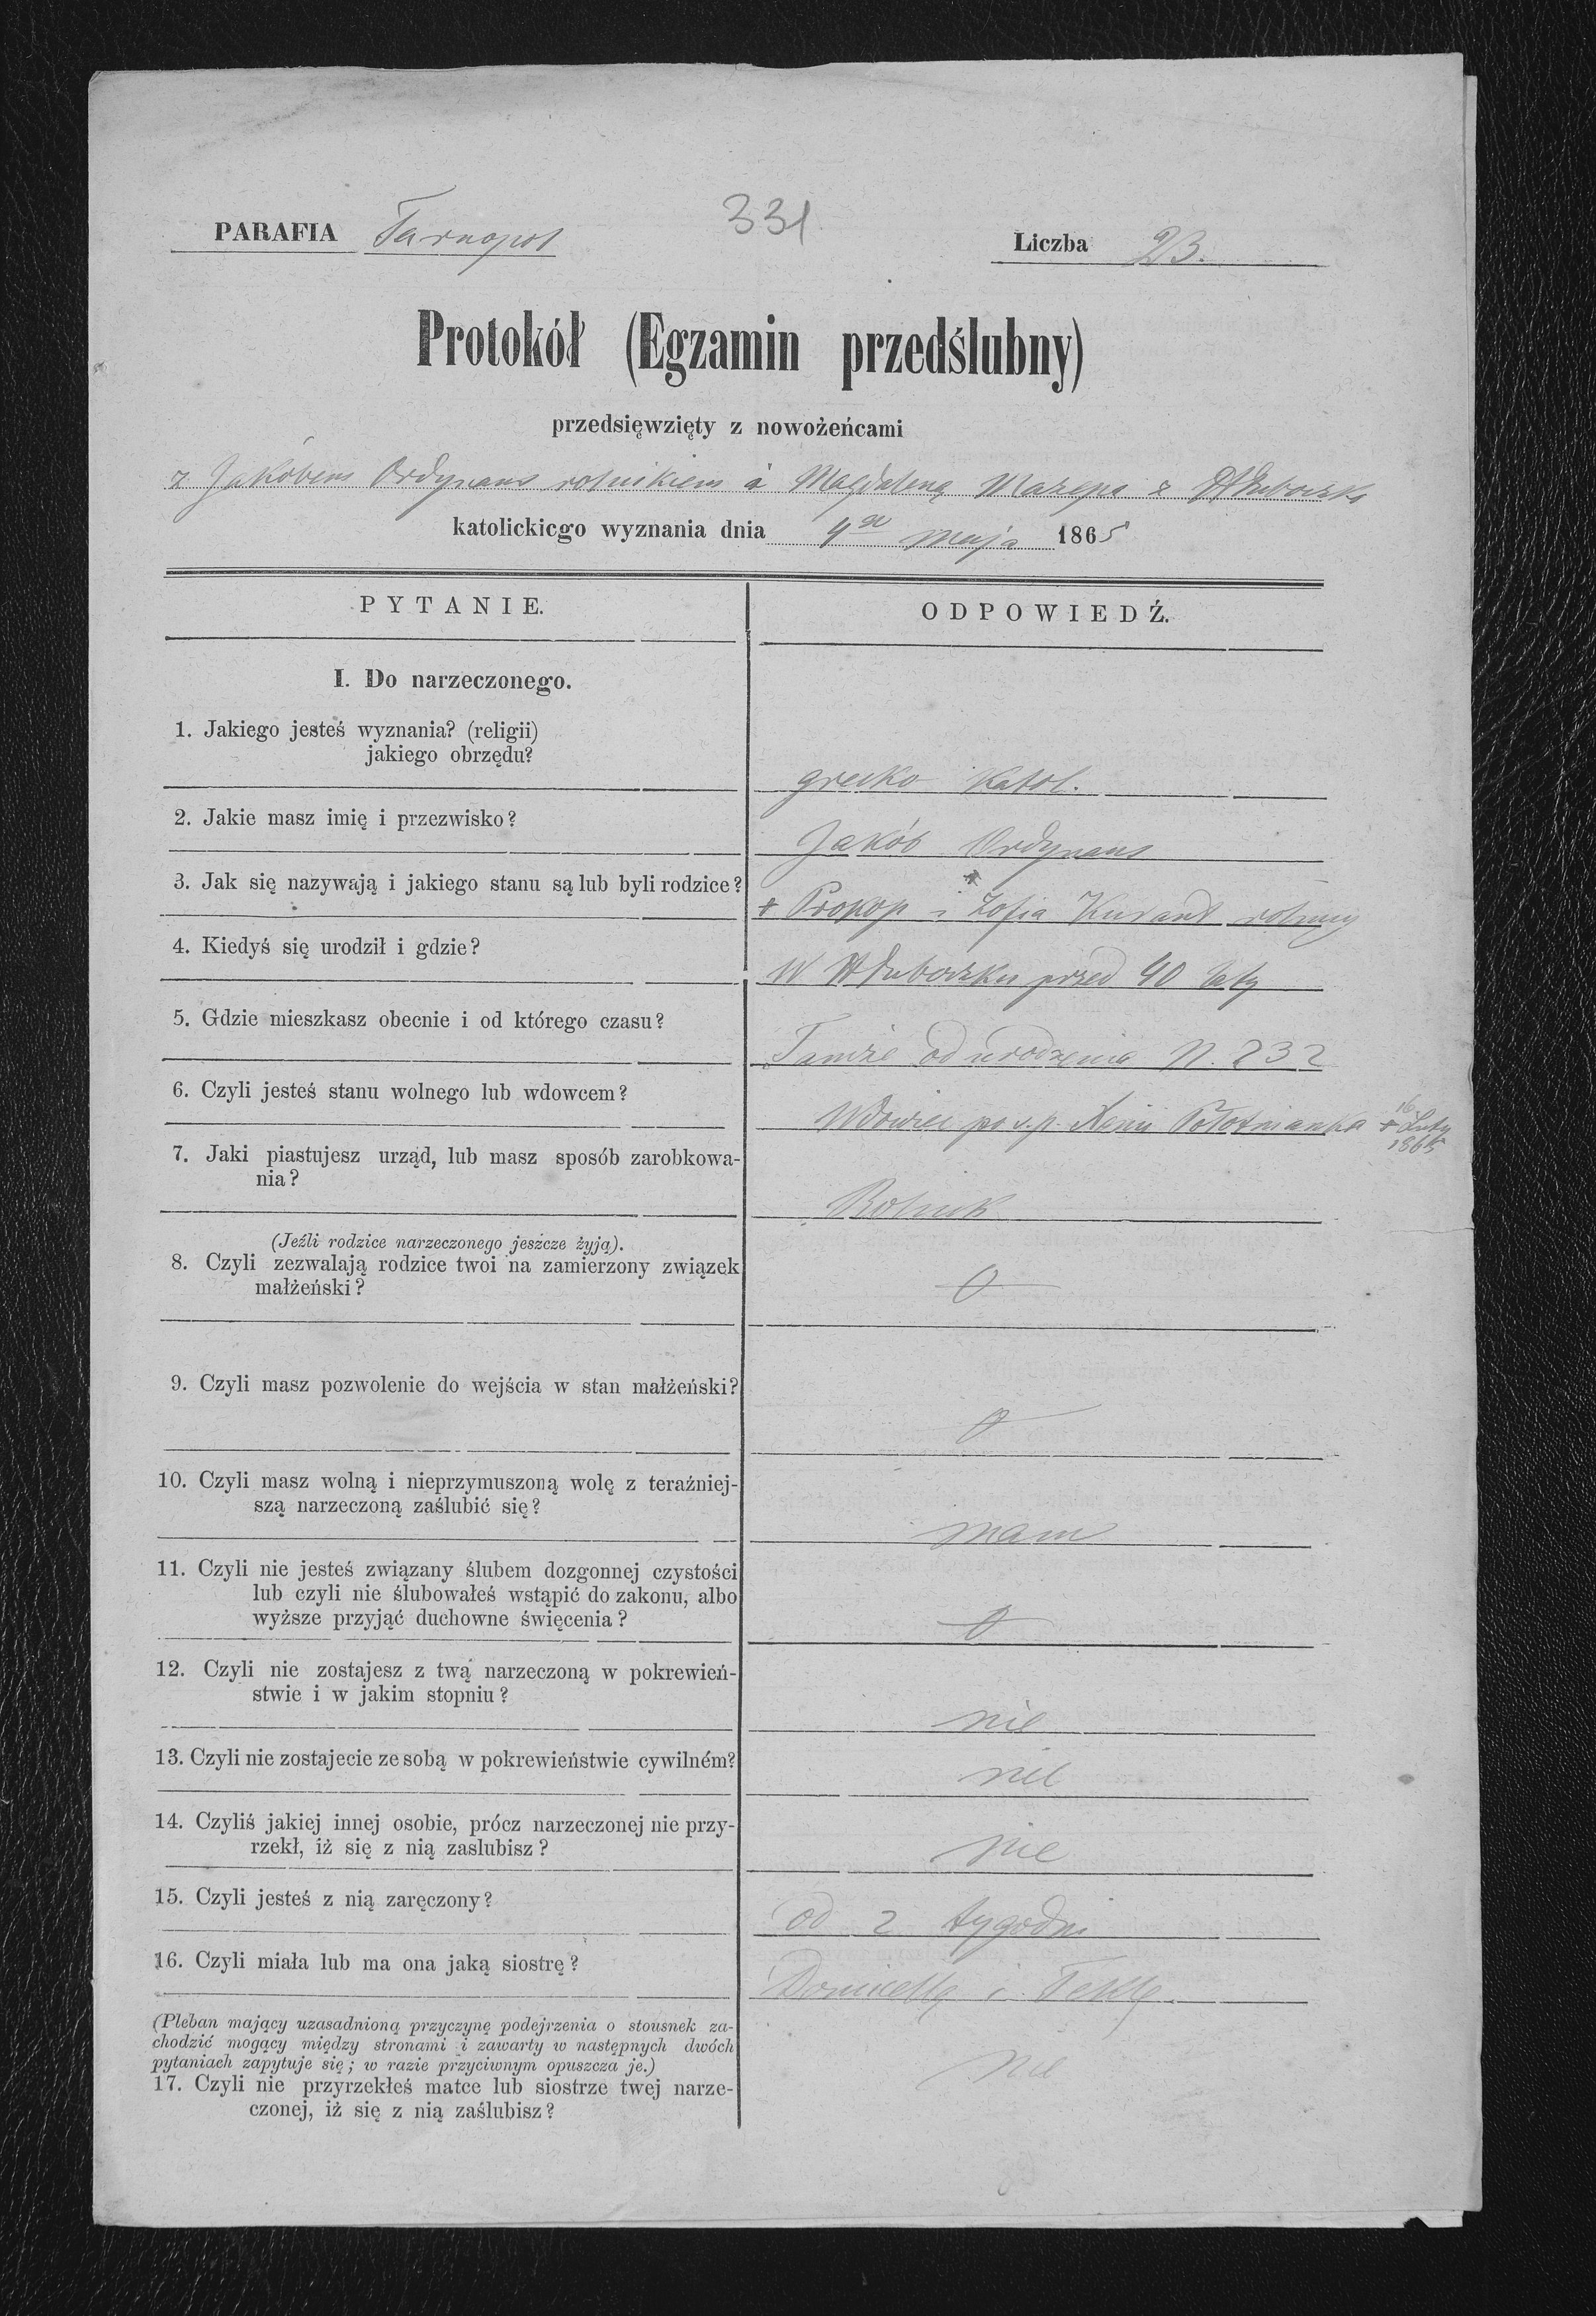 PARAFIA Tarnopol
331
Liczba 23.
Protokół (Egzamin przedślubny)
przedsięwzięty z nowożeńcami
z Jakóbem Ordynans rolnikiem a Magdaleną Mazepa z Hłuboczka
katolickiego wyznania dnia 4go maja 1865
PYTANIE.
ODPOWIEDŹ.
I. Do narzeczonego.
1. Jakiego jesteś wyznania? (religii)
jakiego obrzędu?
grecko katol.
2. Jakie masz imię i przezwisko?
Jakób Ordynans
3. Jak się nazywają i jakiego stanu są lub byli rodzice?
+ Prokop i Zofia Kurant rolnicy
4. Kiedyś się urodził i gdzie?
W Hłuboczku przed 40 laty
5. Gdzie mieszkasz obecnie i od którego czasu?
Tamże od urodzenia N. 232
6. Czyli jesteś stanu wolnego lub wdowcem?
Wdowiec po ś.p. + 16 Luty
1865
7. Jaki piastujesz urząd, lub masz sposób zarobkowa-
nia?
Rolnik
(Jeźli rodzice narzeczonego jeszcze żyją).
8. Czyli zezwalają rodzice twoi na zamierzony związek
małżeński?
0
9. Czyli masz pozwolenie do wejścia w stan małżeński?
0
10. Czyli masz wolną i nieprzymuszoną wolę z teraźniej-
szą narzeczoną zaślubić się?
mam
11. Czyli nie jesteś związany ślubem dozgonnej czystości
lub czyli nie ślubowałeś wstąpić do zakonu, albo
wyższe przyjąć duchowne święcenia?
0
12. Czyli nie zostajesz z twą narzeczoną w pokrewień-
stwie i w jakim stopniu?
nie
13. Czyli nie zostajecie ze sobą w pokrewieństwie cywilném?
nie
14. Czyliś jakiej innej osobie, prócz narzeczonej nie przy-
rzekł, iż się z nią zaslubisz?
nie
15. Czyli jesteś z nią zaręczony?
od 2 tygodni
16. Czyli miała lub ma ona jaką siostrę?
Domicellę i Teklę
(Pleban mający uzasadnioną przyczynę podejrzenia o stousnek za-
chodzić mogący między stronami i zawarty w następnych dwóch
pytaniach zapytuje się; w razie przyciwnym opuszcza je.)
17. Czyli nie przyrzekłeś matce lub siostrze twej narze-
czonej, iż się z nią zaślubisz?
nie